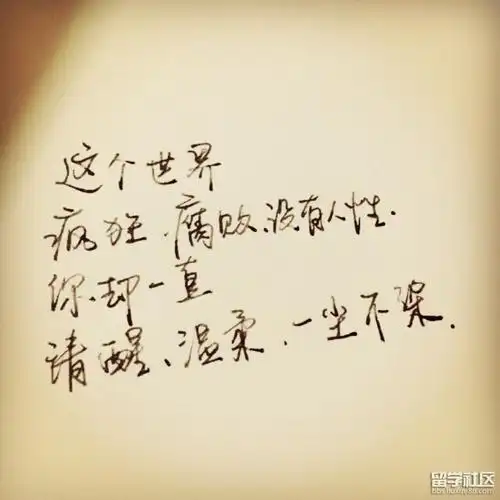 这个世界
疯狂、腐败、没有人性.
你、却一直
清醒、温柔、一尘不染.
留学社区
bbs.liuxue86.com